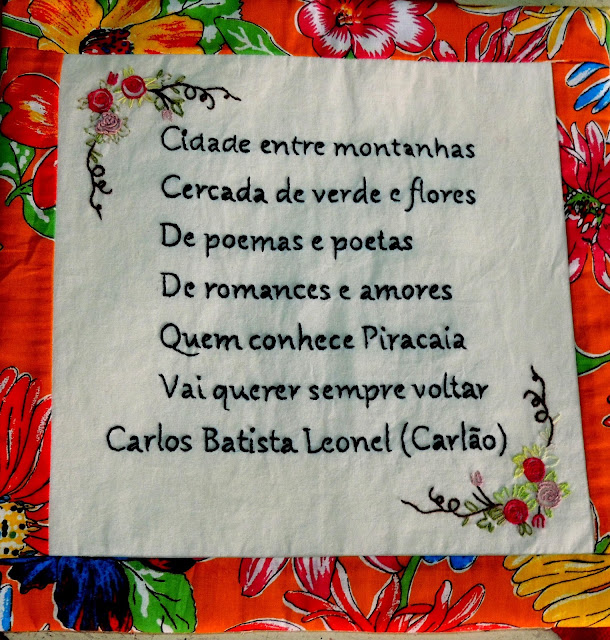 Cidade entre montanhas
Cercada de verde e flores
De poemas e poetas
De romances e amores
Quem conhece Piracaia
Vai querer sempre voltar
Carlos Batista Leonel (Carlão)